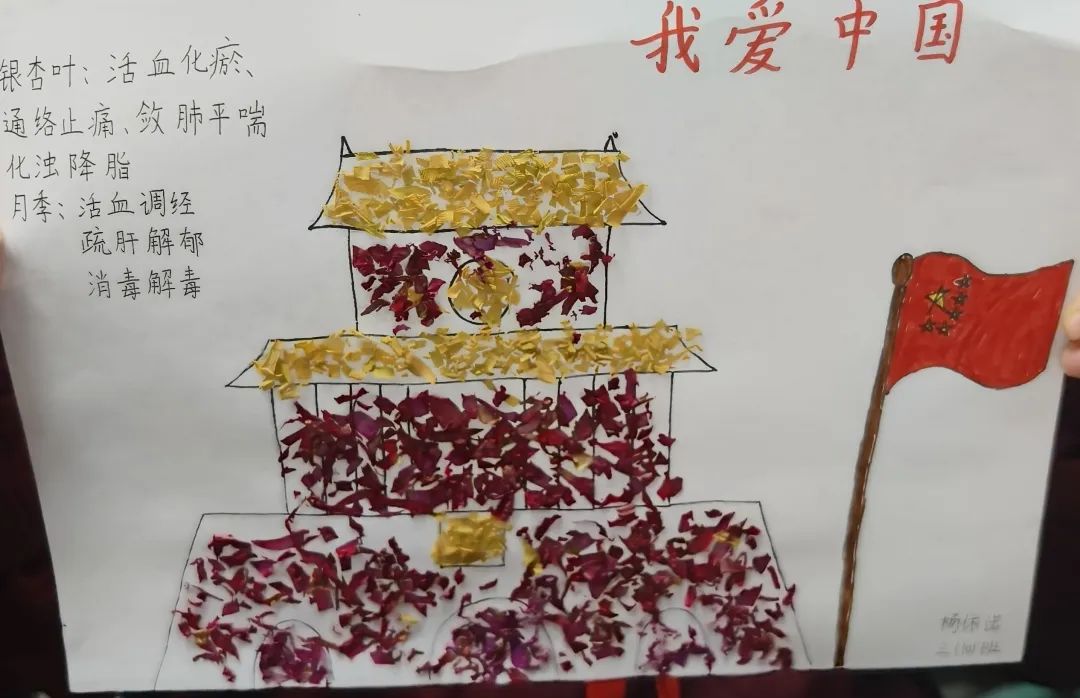 我爱中国
银杏叶：活血化瘀、
通络止痛、敛肺平喘
化浊降脂
月季：活血调经
疏肝解郁
消毒解毒